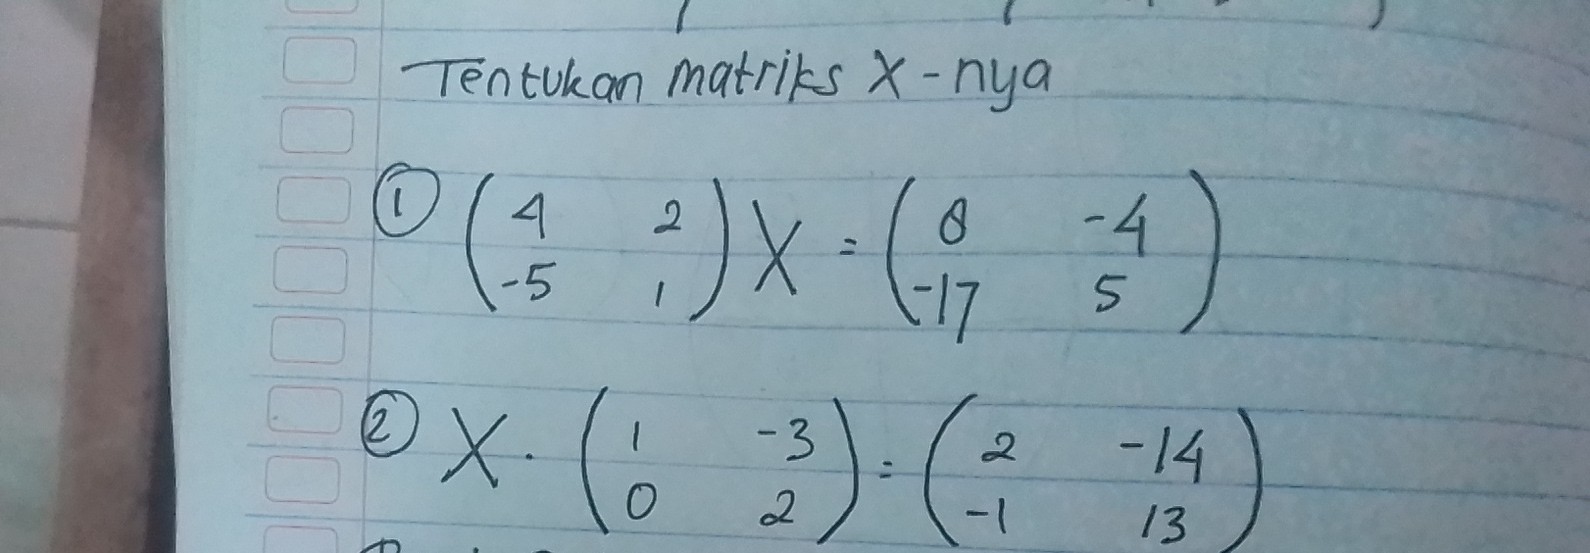 Tentukan matriks X-nya
① (4 2) X = (8 -4)
(-5 1) (-17 5)
② X . (1 -3) = (2 -14)
(0 2) (-1 13)